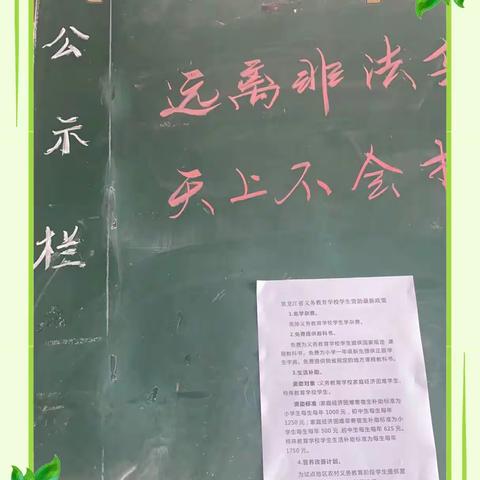 公示栏
远离非法
天上不会
黑龙江省义务教育学校学生资助最新政策
1.免学杂费。
免除义务教育学校学生学杂费。
2.免费提供教科书。
免费为义务教育学校学生提供国家规定 课
程教科书，免费为小学一年级新生提供正版学
生字典。免费提供我省规定的地方课程教科书。
3.生活补助。
资助对象：义务教育学校家庭经济困难学生、
特殊教育学校学生。
资助标准：家庭经济困难寄宿生补助标准为
小学生每生每年 1000 元，初中生每生每年
1250 元；家庭经济困难非寄宿生补助标准为小
学生每生每年 500 元，初中生每生每年 625 元。
特殊教育学校学生生活补助标准为每生每年
1750 元。
4.营养改善计划。
为试点地区农村义务教育阶段学生提供营